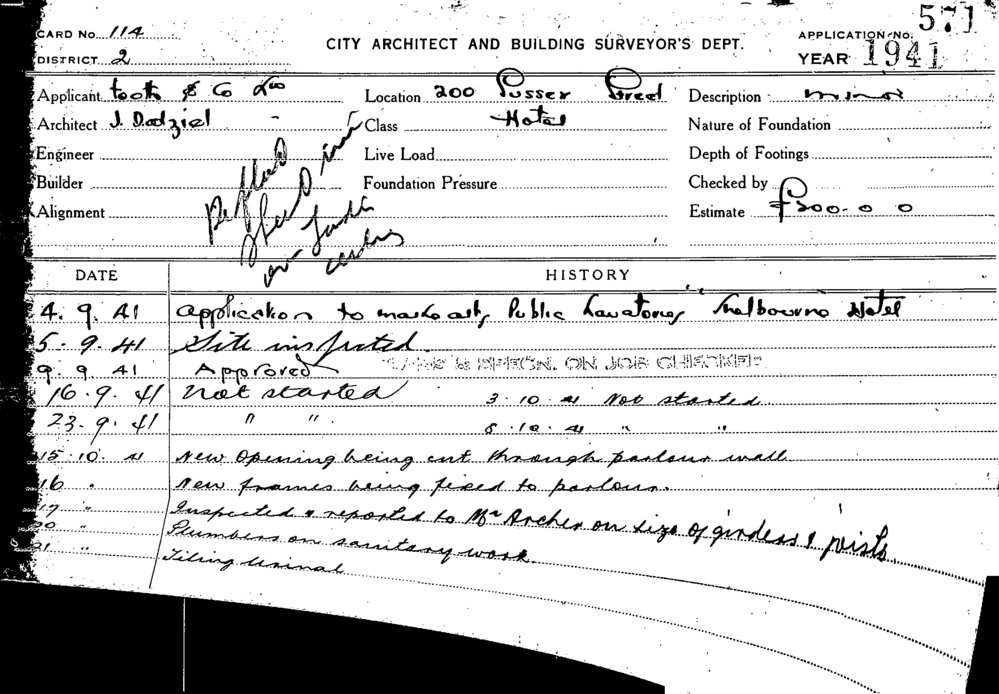 571
CARD No. 114
CITY ARCHITECT AND BUILDING SURVEYOR'S DEPT.
APPLICATION No.
DISTRICT 2
YEAR 1941
Applicant Tooth & Co Ltd Location 200 Sussex Street Description minor
Architect J. Dalziel Class Hotel Nature of Foundation
Engineer Live Load Depth of Footings
Builder Foundation Pressure Checked by
Alignment Estimate £200-0 0
cards
DATE HISTORY
4. 9. 41 Application to make alts Public Lavatories Hotel
5. 9. 41 Site inspected.
9. 9 41 Approved PLANS & SPECN. ON JOB CHECKED
16. 9. 41 Not started 3. 10. 41 Not started
23. 9. 41 " " 8. 10. 41 " "
15. 10. 41 New opening being cut through parlour wall
16 " New frames being fixed to parlour.
17 " Inspected & reported to Mr Archer on size of girders & joists
20 " Plumbers on sanitary work.
21 " Tiling Urinal